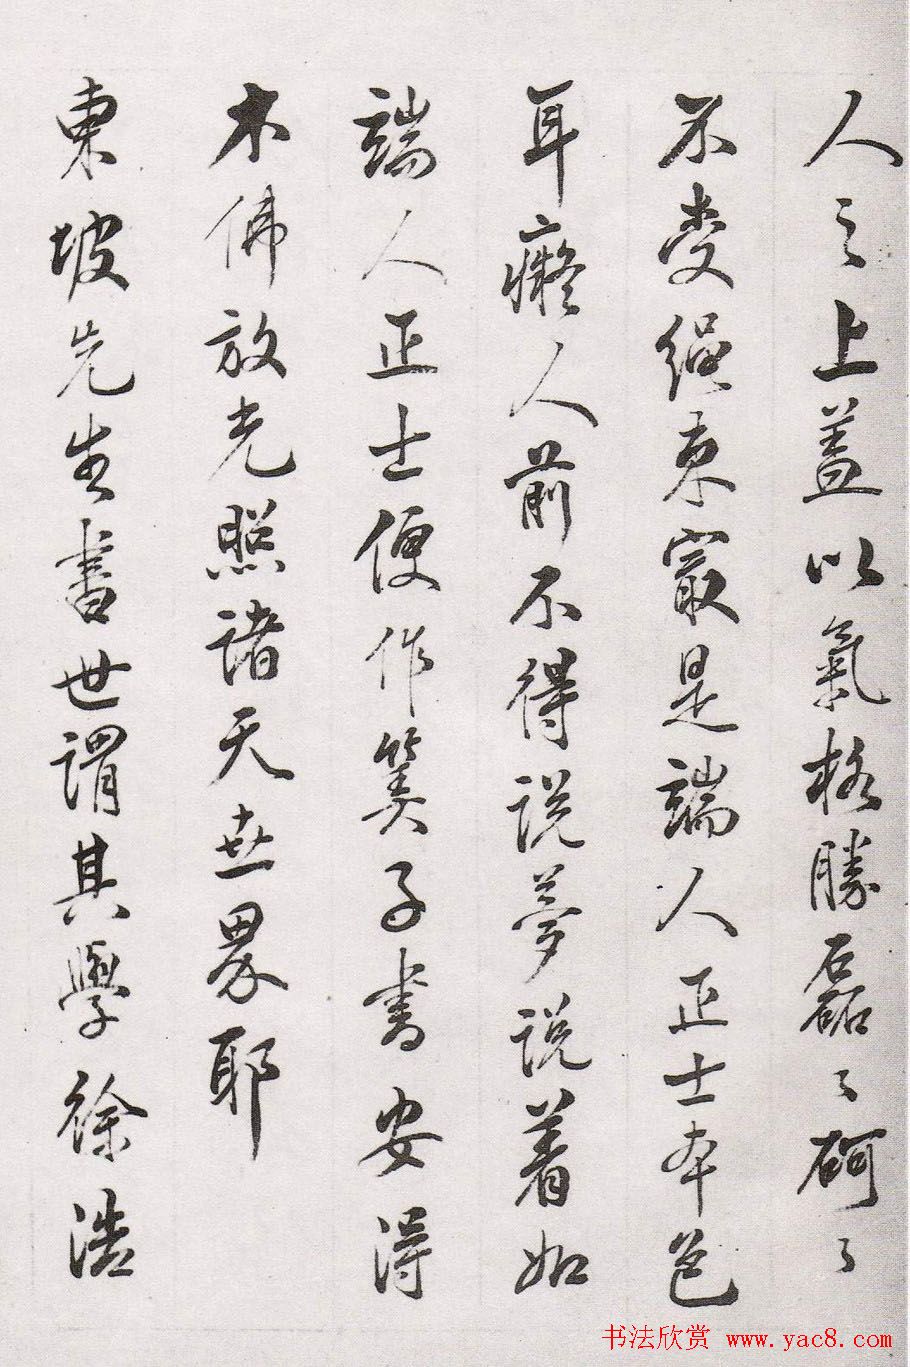 人之上盖以氣格勝磊〻砢〻
不受繩束寂是端人正士本色
耳癡人前不得説夢説着如
端人正士便作筭子書安得
木佛放光照諸天世界耶
東坡先生書世謂其學徐浩
书法欣赏 www.yac8.com